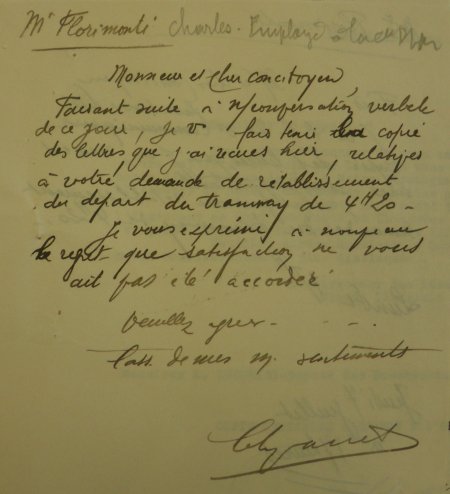 Mr Florimonti Charles - Employé à la
Monsieur et Cher concitoyen
Faisant suite à n/conversation verbale
de ce jour, je v fais tenir copie
des lettres que j'ai reçues hier, relatives
à votre demande de rétablissement
du départ du tramway de 4H20 -
Je vous exprime à nouveau
le regret que satisfaction ne vous
ait pas été accordée
Veuillez agréer - . . -
l'ass. de mes m. sentiments